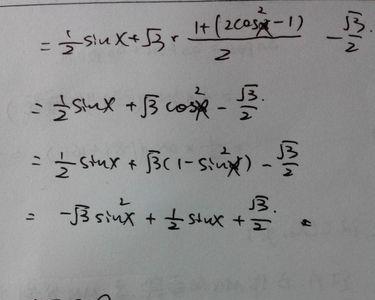 = 1/2 sinx + √3 · (1+(2cos²x-1))/2 - √3/2.
= 1/2 sinx + √3 cos²x - √3/2.
= 1/2 sinx + √3(1-sin²x) - √3/2
= -√3 sin²x + 1/2 sinx + √3/2.